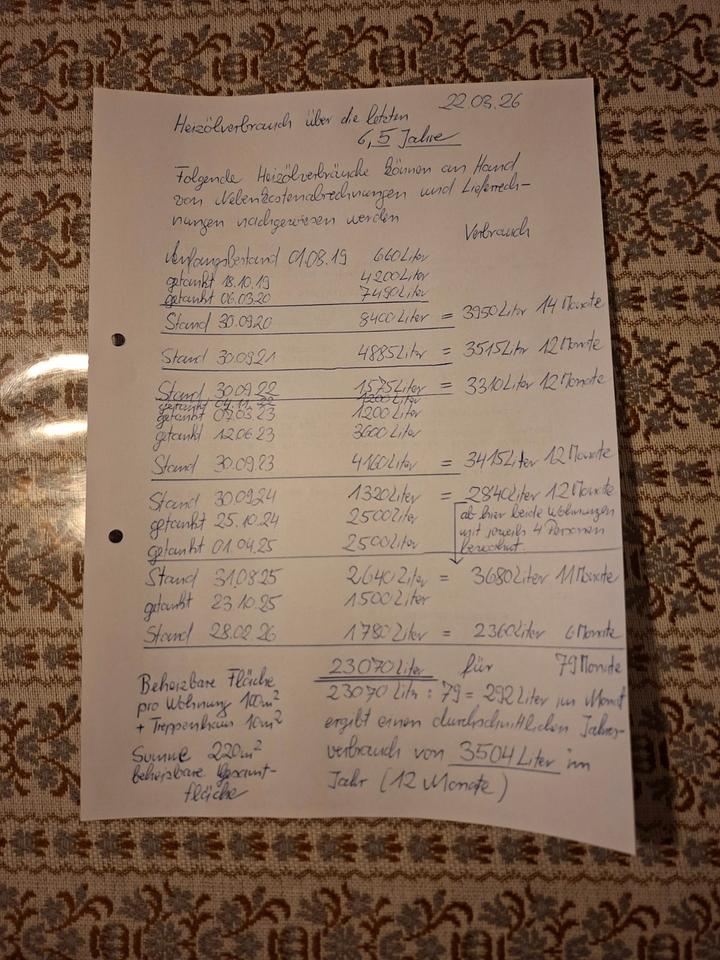 22.03.26
Heizölverbrauch über die letzten
6,5 Jahre
Folgende Heizölverbräuche können an Hand
von Nebenkostenabrechnungen und Lieferrech-
nungen nachgewiesen werden
Verbrauch
Anfangsbestand 01.08.19 660 Liter
getankt 18.10.19 4200 Liter
getankt 06.03.20 7490 Liter
Stand 30.09.20 8400 Liter = 3950 Liter 14 Monate
Stand 30.09.21 4885 Liter = 3515 Liter 12 Monate
Stand 30.09.22 1575 Liter = 3310 Liter 12 Monate
getankt 1200 Liter
getankt 07.03.23 1200 Liter
getankt 12.06.23 3600 Liter
Stand 30.09.23 4160 Liter = 3415 Liter 12 Monate
Stand 30.09.24 1320 Liter = 2840 Liter 12 Monate
ab hier beide Wohnungen
mit jeweils 4 Personen
bewohnt
getankt 25.10.24 2500 Liter
getankt 01.04.25 2500 Liter
Stand 31.08.25 2640 Liter = 3680 Liter 11 Monate
getankt 23.10.25 1500 Liter
Stand 28.02.26 1780 Liter = 2360 Liter 6 Monate
23070 Liter für 79 Monate
23070 Litr : 79 = 292 Liter im Monat
ergibt einen durchschnittlichen Jahres-
verbrauch von 3504 Liter im
Jahr (12 Monate)
Beheizbare Fläche
pro Wohnung 100m²
+ Treppenhaus 10m²
Summe 220m²
beheizbare Gesamt-
fläche